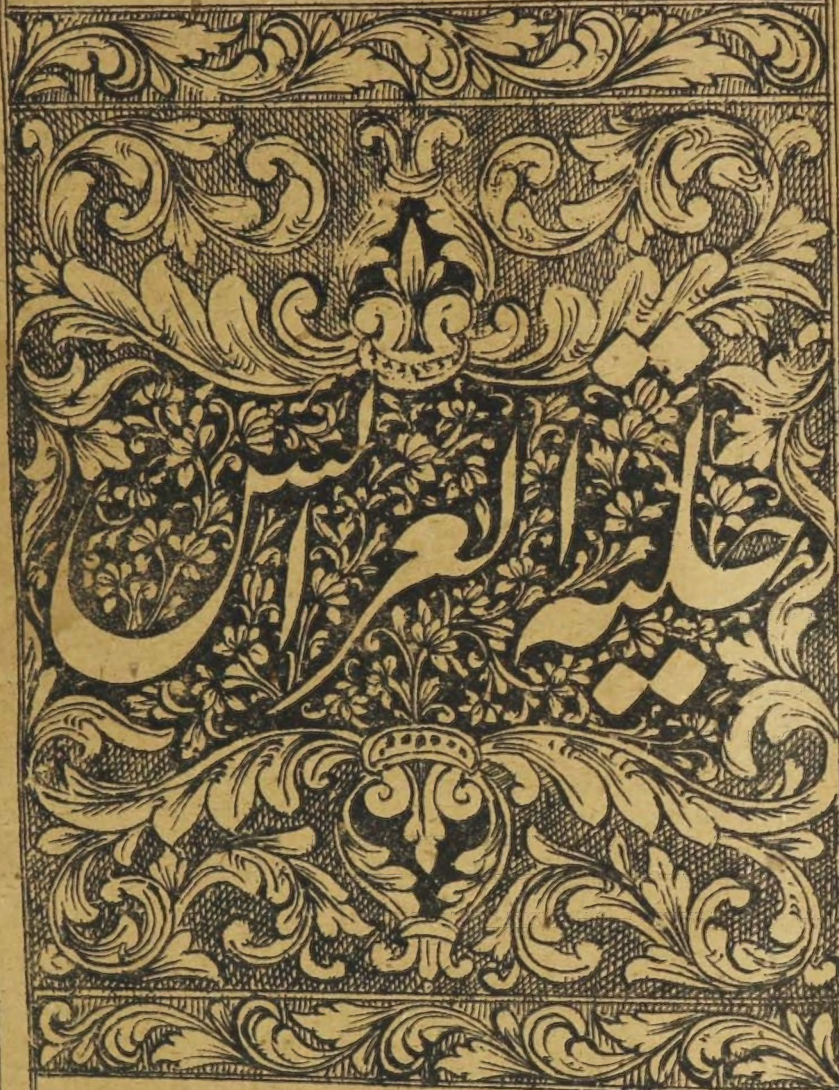 حلیة العرائس